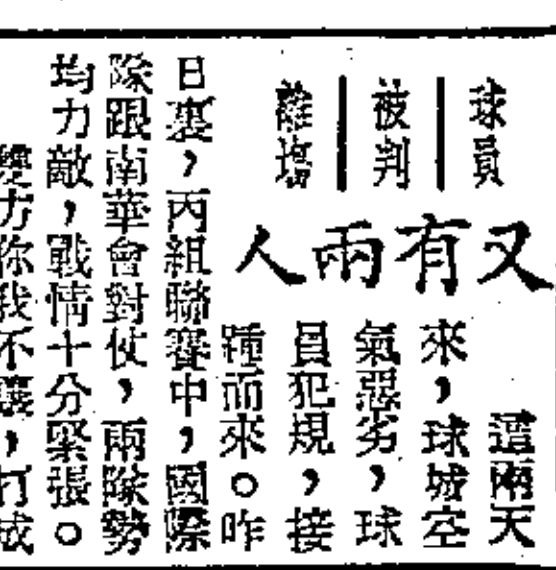 球員
被判
離場
又有兩人
這兩天
來，球城空
氣惡劣，球
員犯規，接
踵而來。昨
日裏，丙組聯賽中，國際
隊跟南華會對仗，兩隊勢
均力敵，戰情十分緊張。
雙方你我不讓，打成